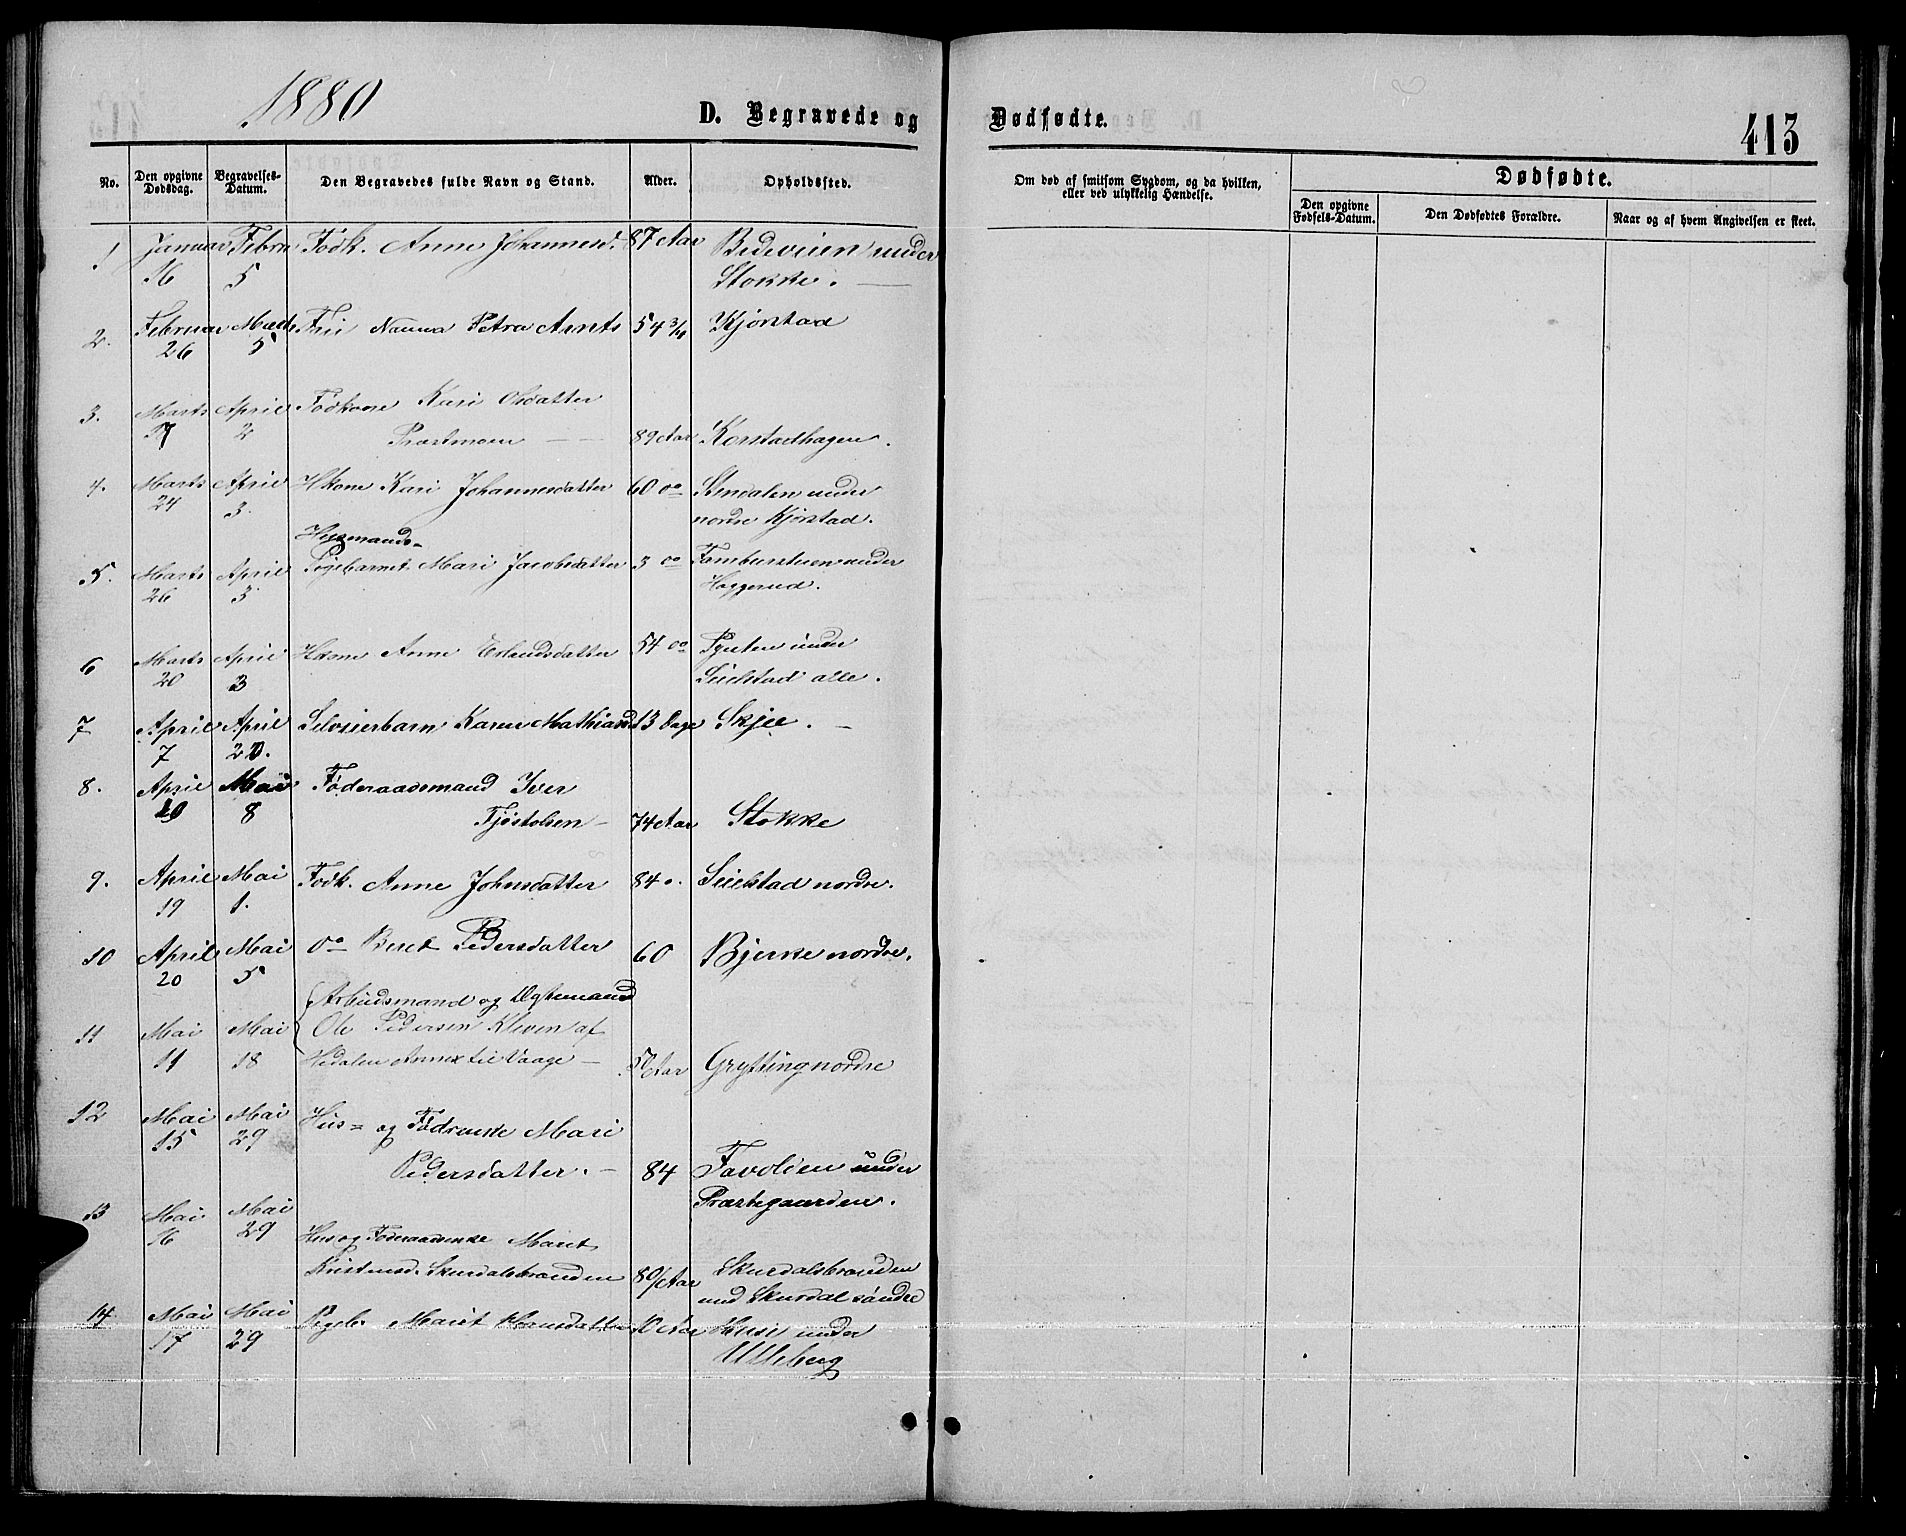 1880
D. Begravede og Dødfødte.
413
No. Den opgivne Dødsdag. Begravelses-Datum. Den Begravedes fulde Navn og Stand. Alder. Opholdssted. Om død af smitsom Sygdom, og da hvilken, eller ved ulykkelig Hændelse. Dødfødte.
Den opgivne Fødsels-Datum. Den Dødfødtes Forældre. Naar og af hvem Angivelsen er skeet.
1 Januar Febru Fodk. Anne Johannesd. 87 Aar Bedeveien under
16 5 Stokke.
2. Februar Marts Fru Nanna Petra Arnets 54 3/4 Kjørstad
26 5
3. Marts April Fodkone Kari Olsdatter
17 2 Præstmoen 89 Aar Korstadhagen.
4. Marts April Hkone Kari Johannesdatter 60 do Stendalen under
24 3. nordre Kjørstad.
Husmands-
5. Marts April Pigebarnet Mari Jacobsdatter 3 do Tamburstuen under
26 3 Haggerud.
6 Marts April Hkone Anne Erlandsdatter 54 do Pynten under
20 3 Seielstad alle.
7 April April Selveierbarn Karen Mathiasd 13 Dage Skjee.
7 20.
8. April Mai Føderaadsmand Iver
19 8 Fjøstolsen 74 Aar Stokke
9. April Mai Fodk. Anne Johnsdatter 84 Seielstad nordre.
19 1.
10 April Mai do Beret Pedersdatter 60 Bjerke nordre.
20 5
Arbeidsmand og Ægtemand
11 Mai Mai Ole Pedersen Kleven af
11 18 Hedalen Annex til Vaage Aar Grytting nordre
12 Mai Mai Hus- og Fødrenke Mari
15 29 Pedersdatter. 84 Tavolien under
Præstegaarden.
13 Mai Mai
16 29 Hus og Føderaadenke Marit
Kristensd. Skurdalsbrænden 80 Aar Skurdalsbrænden
und Skurdal søndre
14 Mai Mai Pigeb. Marit Hansdatter 10 Aar Husi under
17 29 Ulleberg